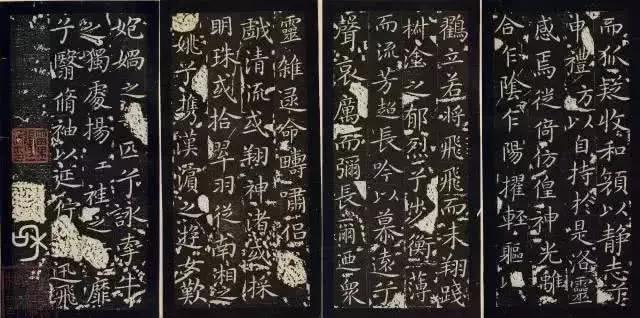 而狐疑收和顏以静志兮
申禮方以自持於是洛靈
感焉徙倚仿偟神光離
合乍陰乍陽擢輕軀以
鸖立若將飛飛而未翔踐
椒塗之郁烈兮步衡薄
而流芳超長吟以慕遠兮
聲哀厲而彌長爾迺衆
靈雜遝命疇肅侶
戲清流或翔神渚或採
明珠或拾翠羽從南湘之
姚兮攜漢濱之遊女歎
媧之匹兮詠牽牛
之獨處揚袿之靡
兮翳脩袖以延佇迅飛